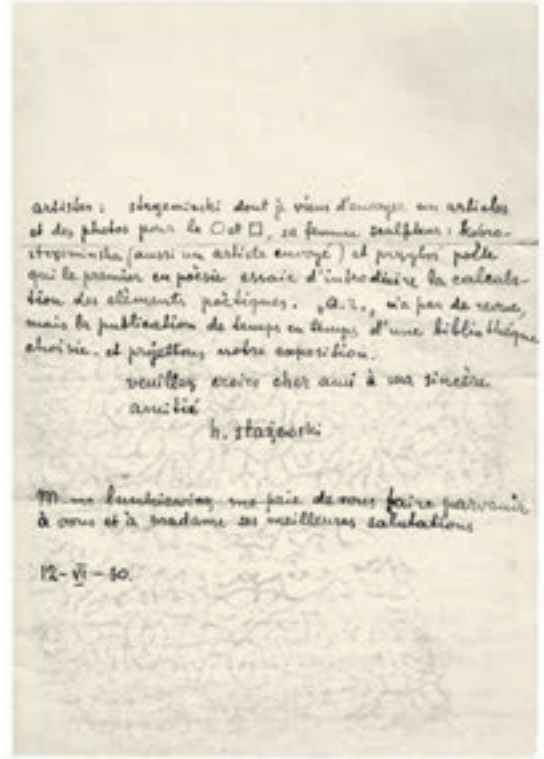 artistes : strzeminski dont je viens d'envoyer un articles
et des photos pour le O et □, sa femme sculpteur : kobro-
strzeminska (aussi un article envoyé) et przyboś poëte
qui le premier en poësie essaie d'introduire la calcula-
tion des elèments poëtiques. „a.r.„ n'a pas de revue,
mais la publication de temps en temps d'une bibliothéque
choisie. et projettons notre exposition.
veuillez croire cher ami à ma sincère
amitié
h. stażewski
M-me me prie de vous faire parvenir
à vous et à madame ses meilleures salutations
12-VI-30.